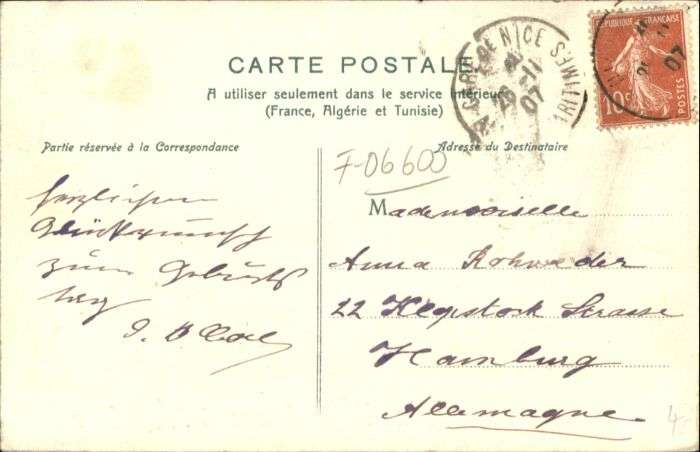 CARTE POSTALE
A utiliser seulement dans le service intérieur
(France, Algérie et Tunisie)
Partie réservée à la Correspondance
Adresse du Destinataire
GARE DE NICE
26-11
07
RITIMES
REPUBLIQUE FRANÇAISE
10c
POSTES
07
F-06600
herzlichen
Glückwunsch
zum Geburts
tag
Mademoiselle
Anna Rohweder
22 Klopstock Strasse
Hamburg
Allemagne
4